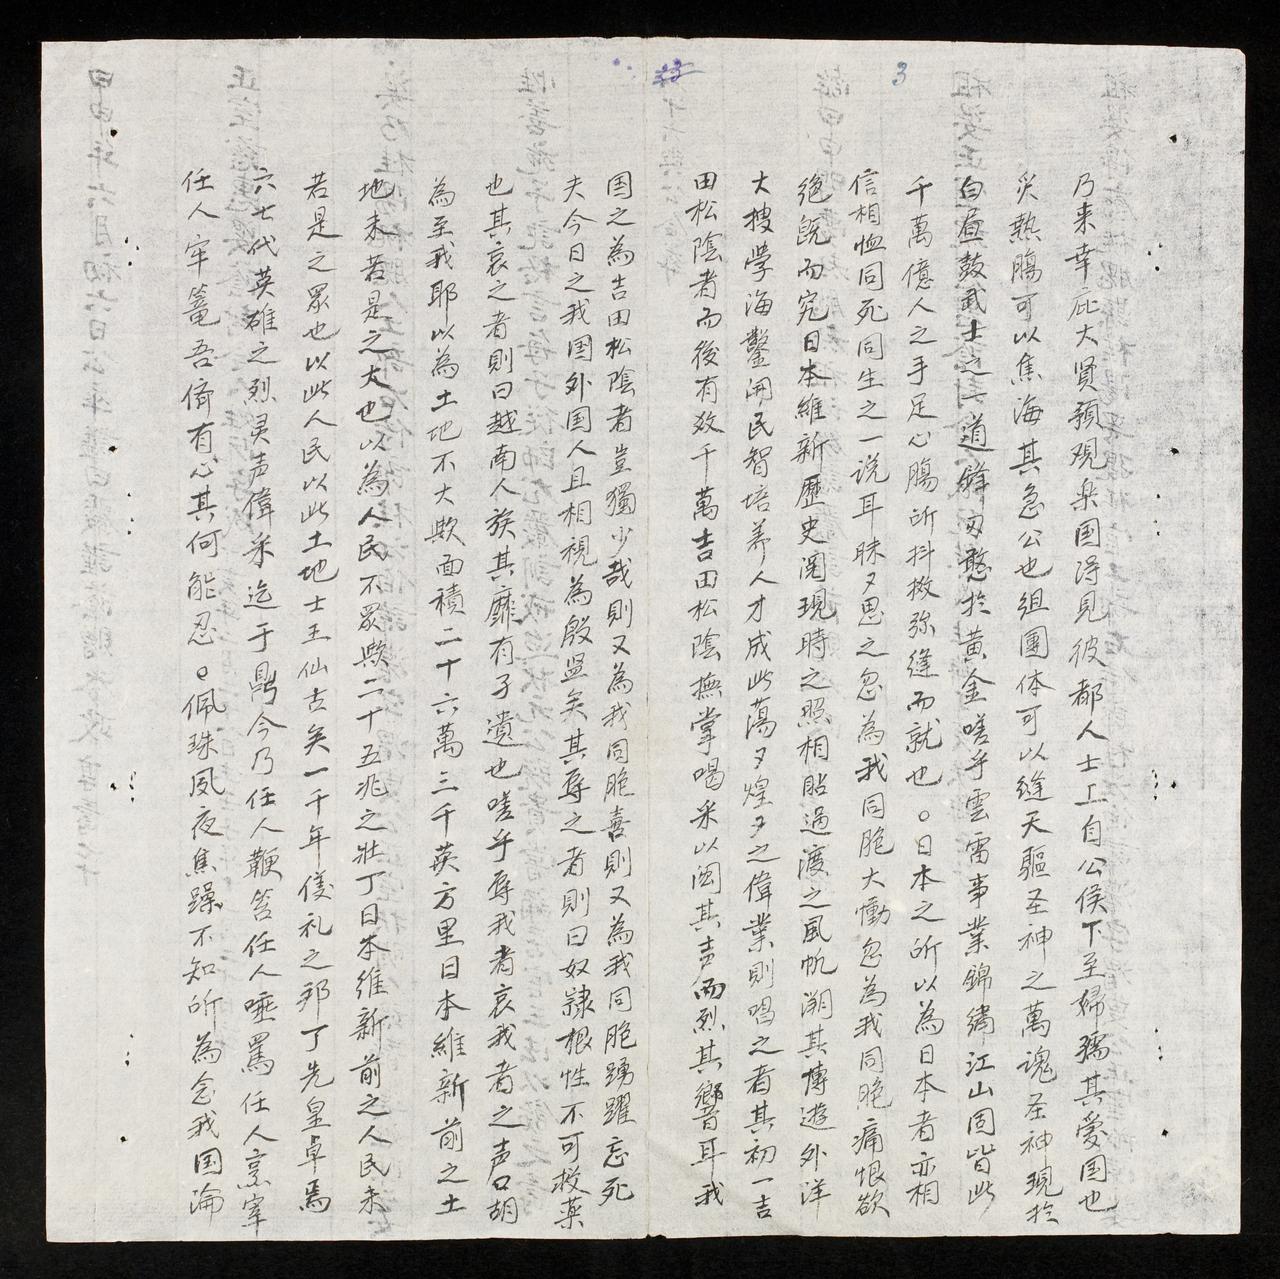 3
乃来幸庇大贤預观樂国得見彼都人士上自公侯下至婦孺其爱国也
災熱膓可以焦海其急公也组團体可以縫天驅圣神之萬魂圣神現於
白昼鼓武士之道辟勇憨於黄金嗟乎雲雷事業錦綉江山固皆此
千萬億人之手足心膓所抖擞弥缝而就也。日本之所以為日本者亦相
信相恤同死同生之一说耳昧々思之忽為我同胞大慟忽為我同胞痛恨欲
绝既而究日本維新歷史阅現時之照相貼過渡之風帆溯其博遊外洋
大搜学海鑿開民智培养人才成此蕩々煌々之偉業則唱之者其初一吉
田松陰者而後有数千萬吉田松陰撫掌喝采以闳其声而烈其響耳我
国之為吉田松陰者豈獨少哉則又為我同胞喜則又為我同胞踴躍忘死
夫今日之我国外国人且相視為殷鉴矣其辱之者則曰奴隷根性不可救薬
也其哀之者則曰越南人族其靡有孑遺也嗟乎辱我者哀我者之声口胡
為至我耶以為土地不大欺面積二十六萬三千英方里日本維新前之土
地未若是之大也以為人民不眾欺二十五兆之壮丁日本维新前之人民未
若是之眾也以此人民以此土地士王仙古矣一千年儀礼之邦丁先皇卓焉
六七代英雄之烈灵声偉釆迄于鼎今乃任人鞭笞任人唾罵任人烹宰
任人牢篭吾儕有心其何能忍。佩珠夙夜焦躁不知所為念我国淪